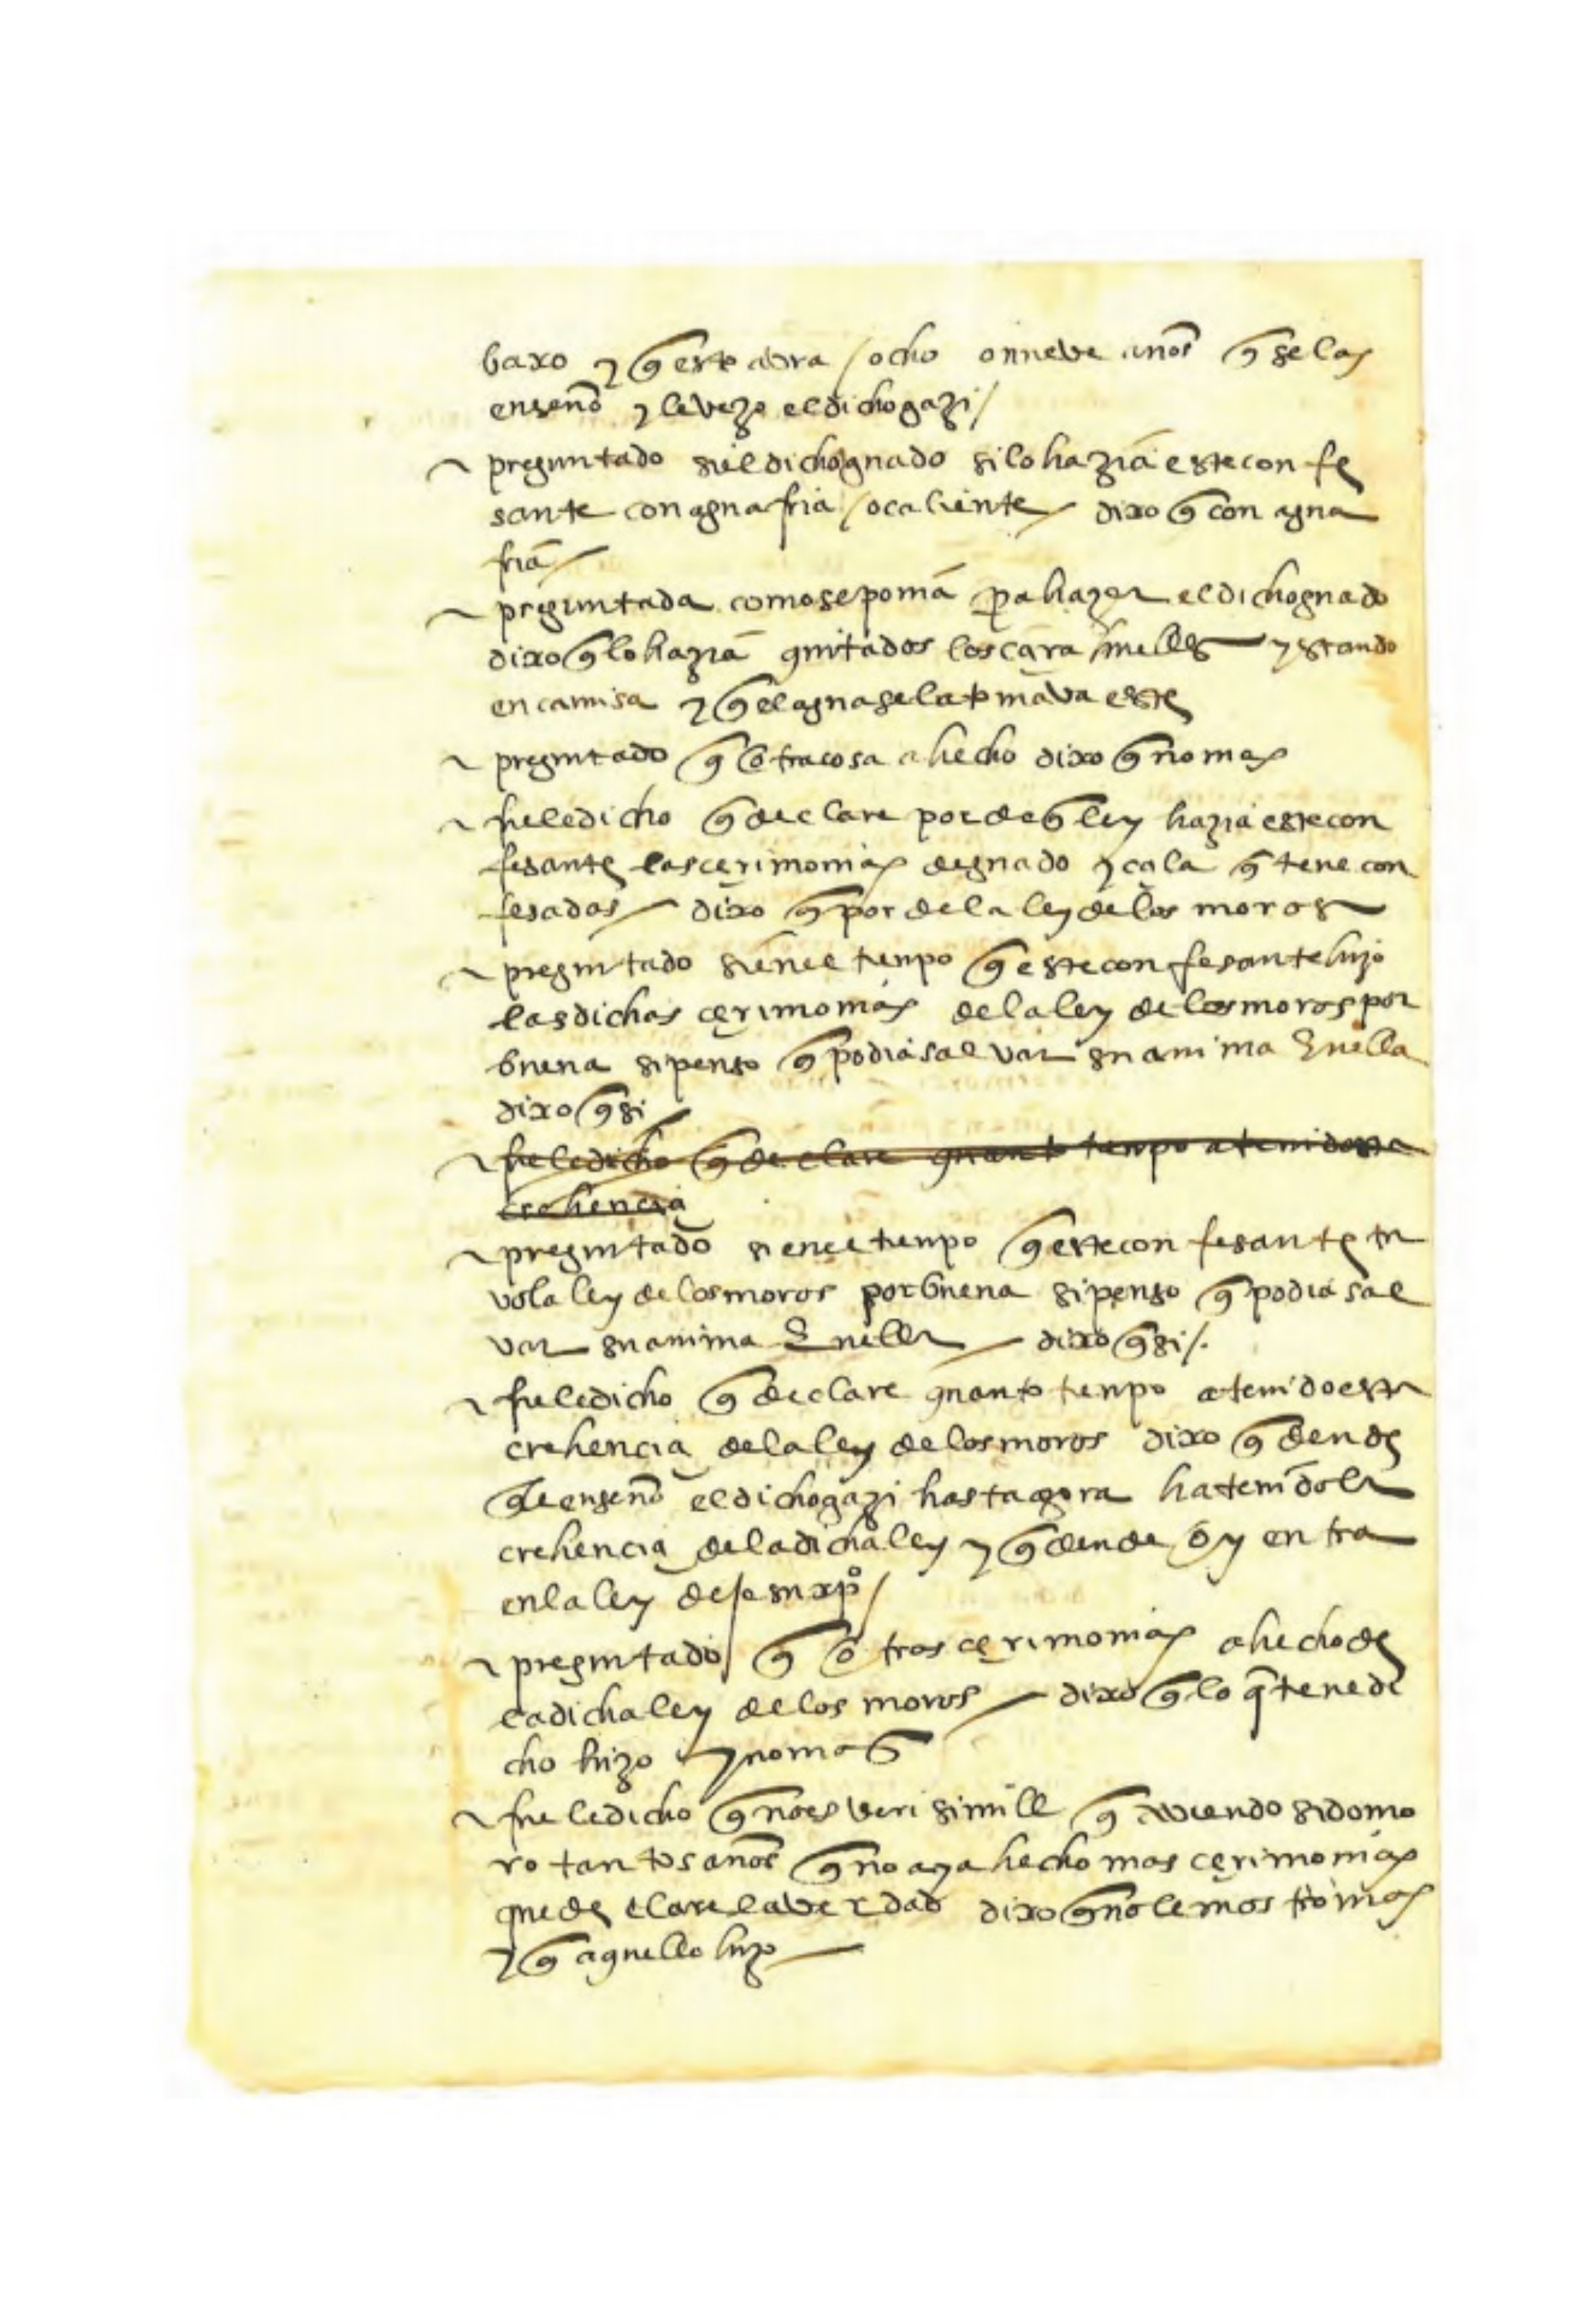 baxo y q̃ esto avra / ocho o nueve años q̃ se las
enseño y le vezo el dicho gazi /
preguntado si el dicho guado si lo hazia este confe
sante con agua fria / o caliente / dixo q̃ con agua
fria /
preguntada como se ponia p̱a hazer el dicho guado
dixo q̃ lo hazia quitados los çaraguelles y estando
en camisa y q̃ el agua se la tomava este
preguntado q̃ otra cosa a hecho dixo q̃ no mas
fuele dicho q̃ declare por de q̃ ley hazia este con
fesante las çerimonias de guado y çala q̃ tene con
fesadas / dixo q̃ por de la ley de los moros
preguntado si en el tienpo q̃ este confesante hizo
las dichas çerimonias de la ley de los moros por
buena si penso q̃ podia salvar su anima en ella
dixo q̃ si
fuele dicho q̃ declare quanto tienpo a tenido esta
crehencia
preguntado si en el tienpo q̃ este confesante tu
vo la ley de los moros por buena si penso q̃ podia sal
var su anima en ella / dixo q̃ si /.
fuele dicho q̃ declare quanto tienpo a tenido esta
crehencia de la ley de los moros dixo q̃ dende
q̃ le enseño el dicho gazi hasta agora ha tenido la
crehencia de la dicha ley y q̃ dende oy entra
en la ley de jesuxpo /
preguntado / q̃ otras çerimonias a hecho de
la dicha ley de los moros / dixo q̃ lo q̃ tene di
cho hizo y no mas
fuele dicho q̃ no es verisimill q̃ aviendo sido mo
ro tantos años q̃ no aya hecho mas çerimonias
que declare la verdad dixo q̃ no le mostro mas
y q̃ aquello hizo